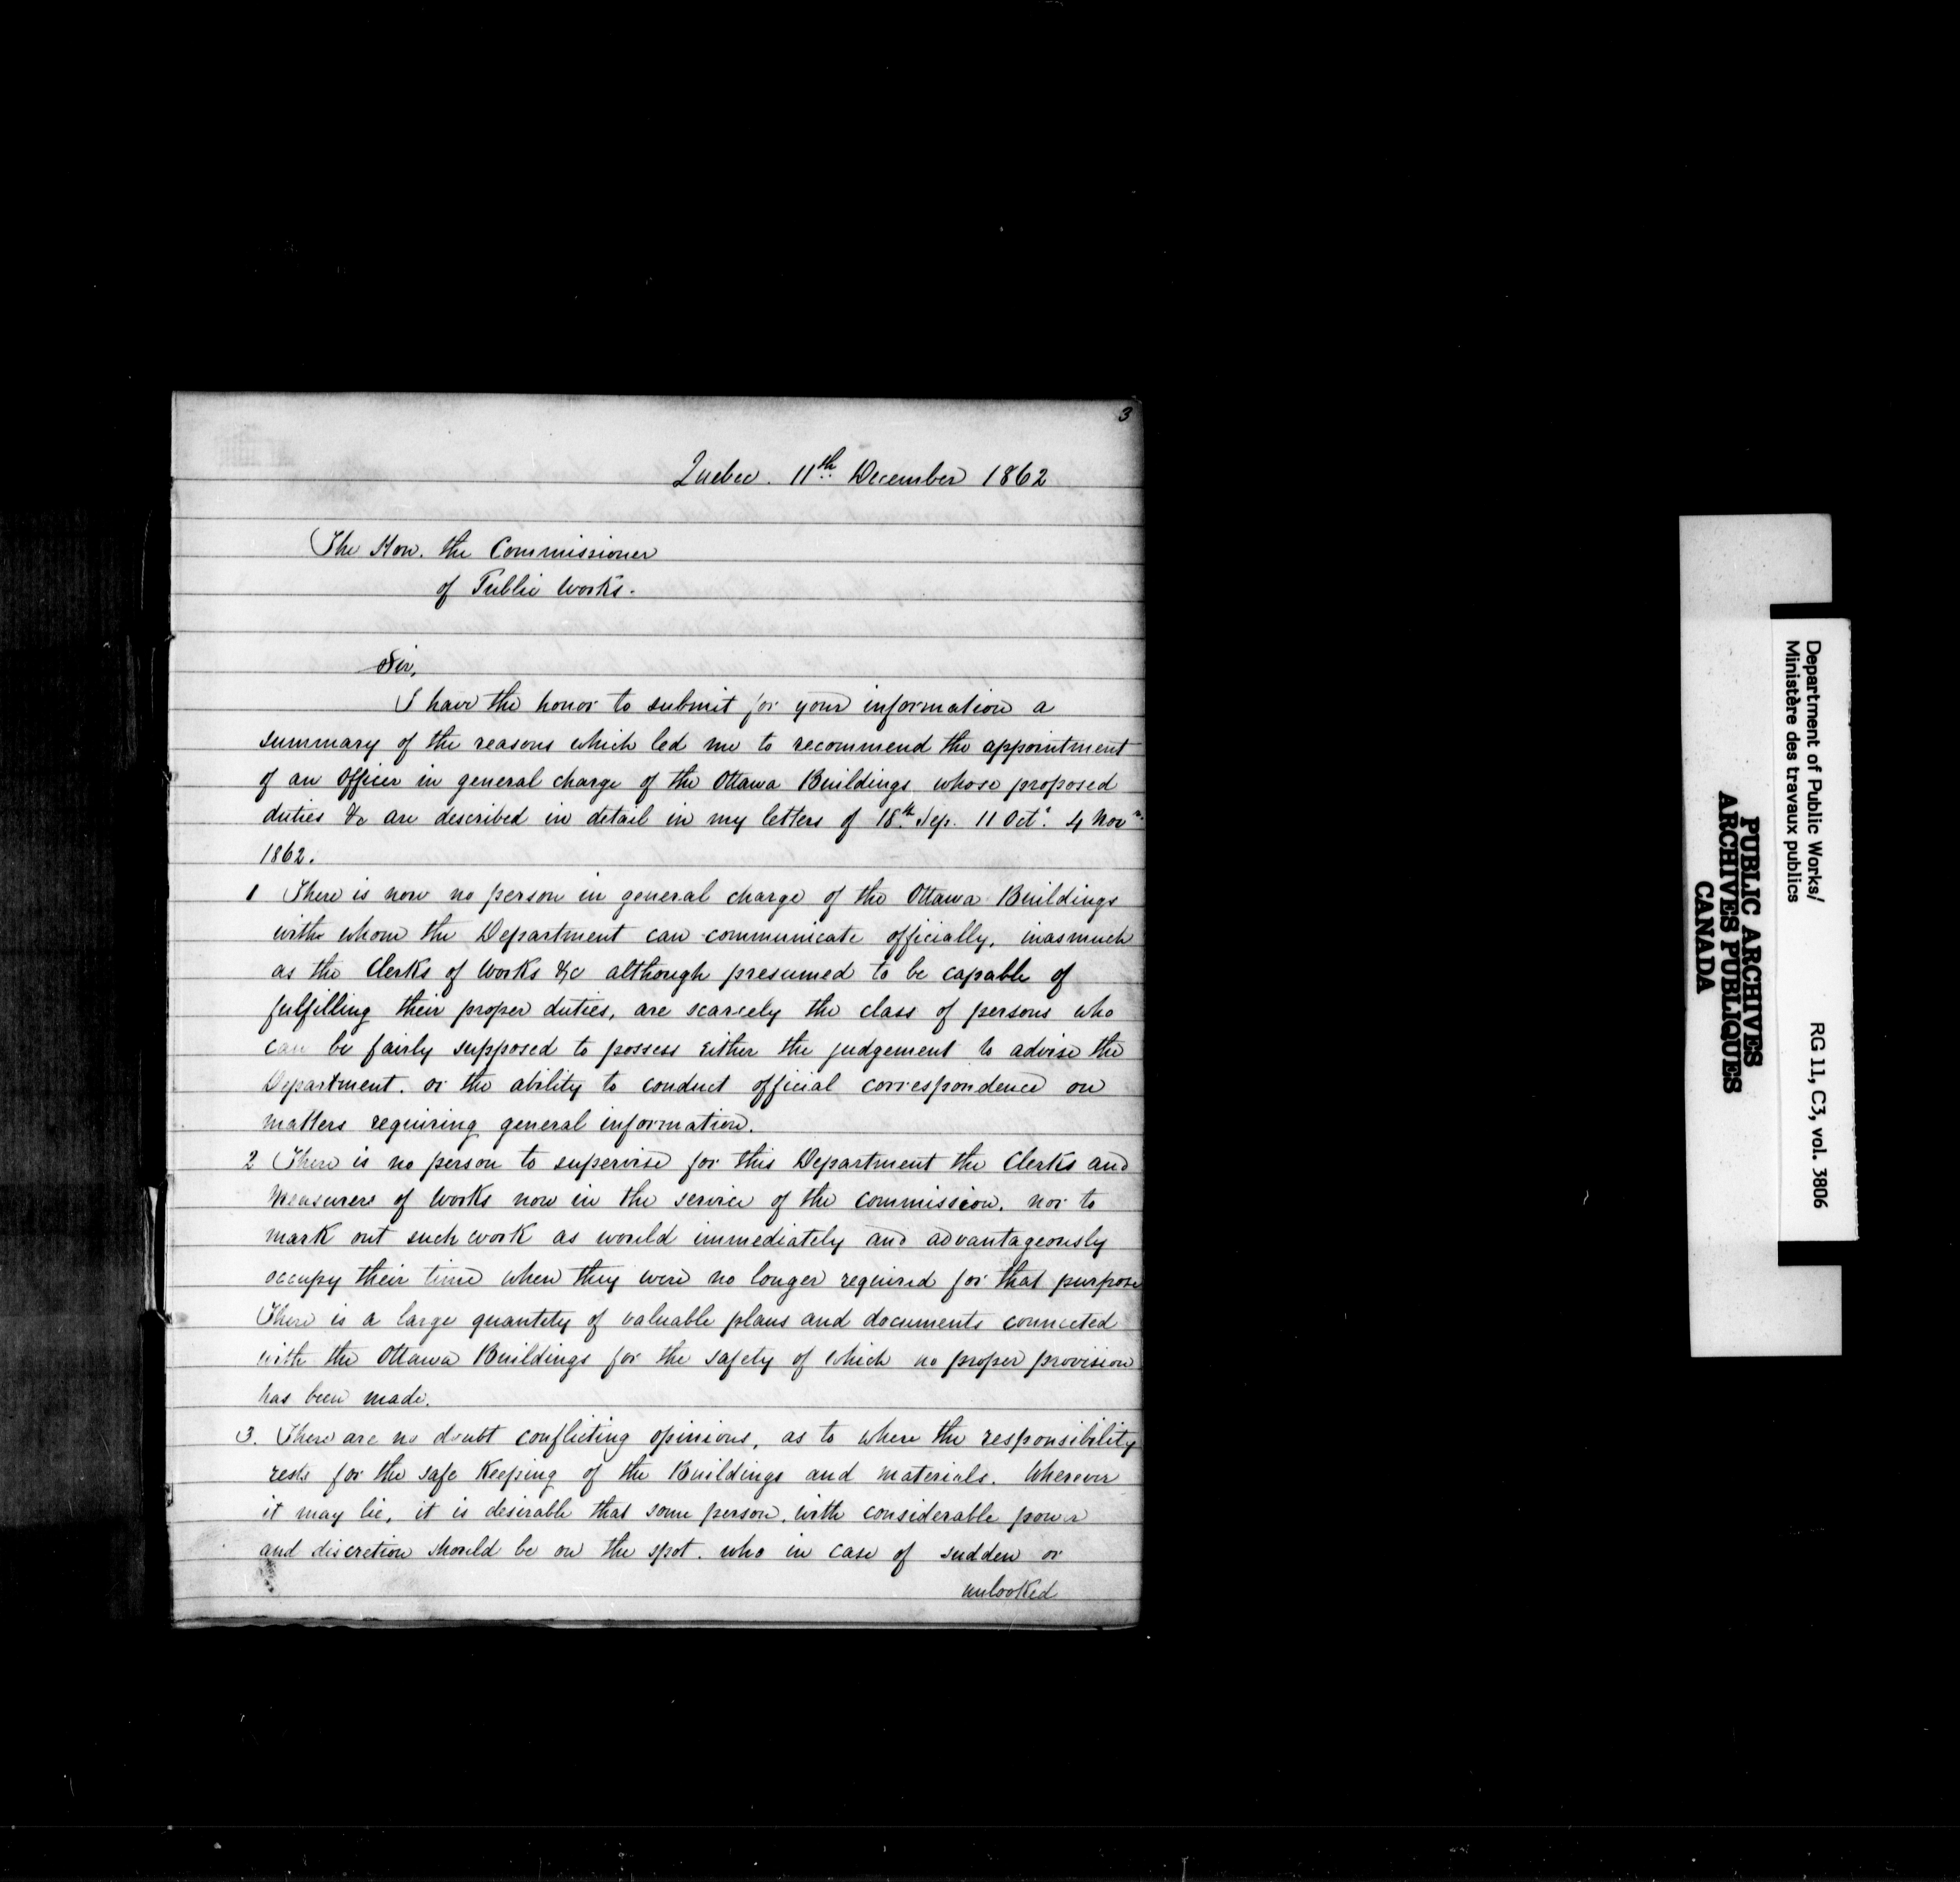 3
Quebec. 11th December 1862
The Hon. the Commissioner
of Public Works.
Sir,
I have the honor to submit for your information a
summary of the reasons which led me to recommend the appointment
of an Officer in general charge of the Ottawa Buildings whose proposed
duties &c are described in detail in my letters of 18th Sep. 11 Octr. 4 Novr.
1862.
1 There is now no person in general charge of the Ottawa Buildings
with whom the Department can communicate officially, inasmuch
as the Clerks of Works &c although presumed to be capable of
fulfilling their proper duties, are scarcely the class of persons who
can be fairly supposed to possess either the judgement to advise the
Department. or the ability to conduct official correspondence on
matters requiring general information.
2 There is no person to supervise for this Department the Clerks and
Measurers of Works now in the service of the commission, nor to
mark out such work as would immediately and advantageously
occupy their time when they were no longer required for that purpose
There is a large quantity of valuable plans and documents connected
with the Ottawa Buildings for the safety of which no proper provision
has been made.
3. There are no doubt conflicting opinions, as to where the responsibility
rests for the safe Keeping of the Buildings and materials. Wherever
it may lie, it is desirable that some person, with considerable power
and discretion should be on the spot. who in case of sudden or
unlooked
Department of Public Works/
Ministère des travaux publics
RG 11, C3, vol. 3806
PUBLIC ARCHIVES
ARCHIVES PUBLIQUES
CANADA